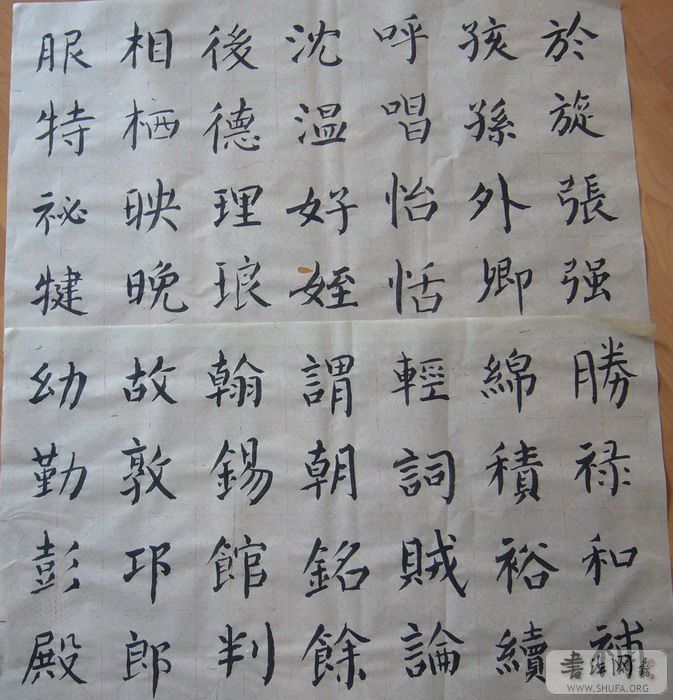 於旋張强
孩孫外卿
呼唱怡恬
沈温好姪
後德理琅
相栖映晚
服特祕犍
勝禄和補
綿積裕續
輕詞賊論
謂朝銘餘
翰錫館判
故敦邛郎
幼勤彭殿
WWW.SHUFA.ORG